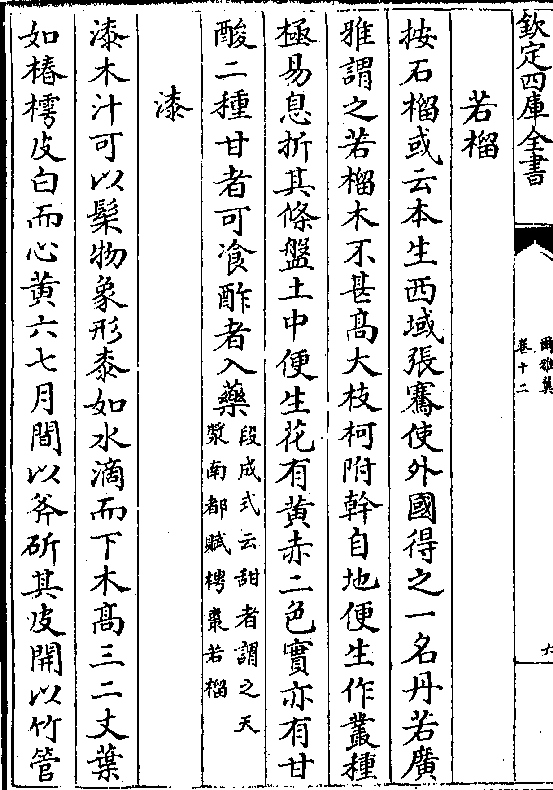 欽定四庫全書
爾雅翼
卷十二
六
若榴
按石榴或云本生西域張騫使外國得之一名丹若廣
雅謂之若榴木不甚髙大枝柯附幹自地便生作叢種
極易息折其條盤土中便生花有黄赤二色實亦有甘
酸二種甘者可飡酢者入藥段成式云甜者謂之天
漿南都賦樗棗若榴
漆
漆木汁可以髹物象形桼如水滴而下木髙三二丈葉
如椿樗皮白而心黄六七月間以斧斫其皮開以竹管